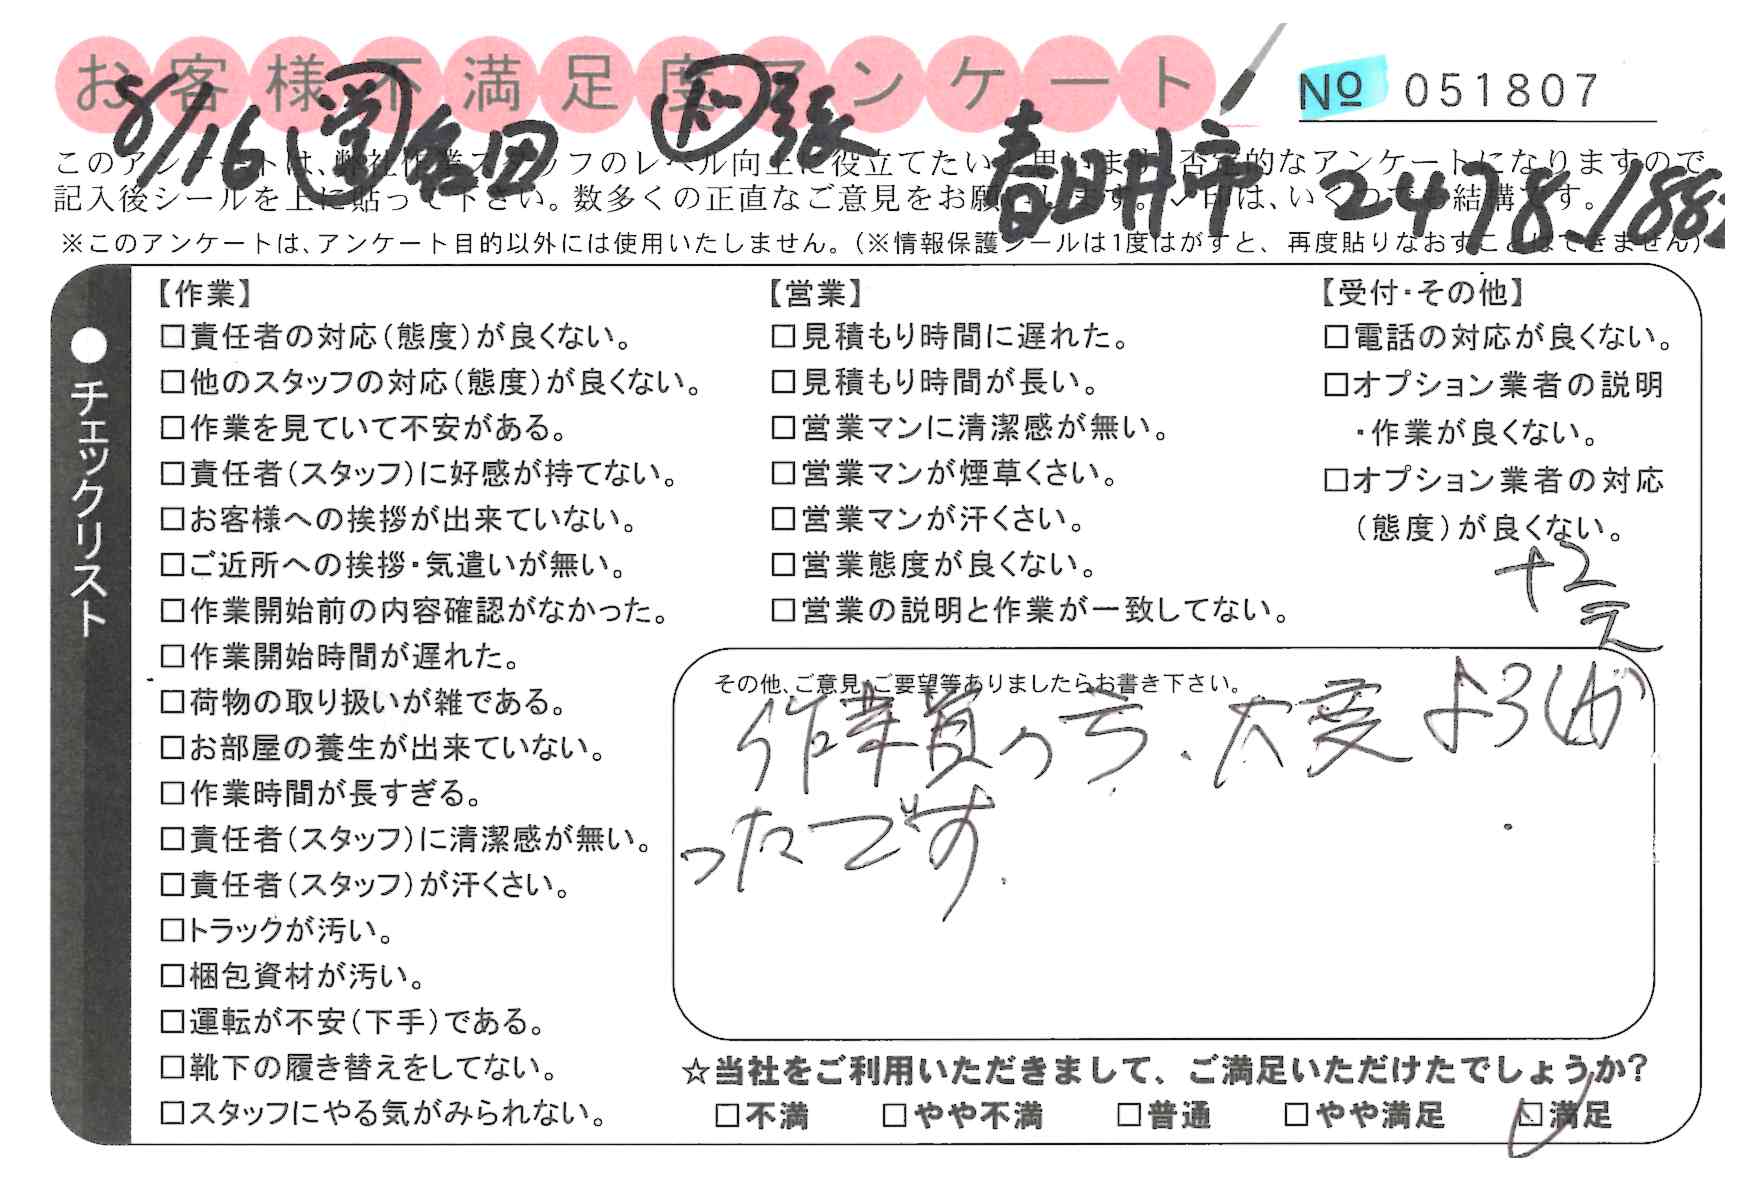 お客様不満足度アンケート
№ 051807
8/16 営 田 下 張 春日井市 2478/188
このアンケートは、弊社作業スタッフのレベル向上に役立てたいと思います。否定的なアンケートになりますので
記入後シールを上に貼って下さい。数多くの正直なご意見をお願いします。✓印は、いくつでも結構です。
※このアンケートは、アンケート目的以外には使用いたしません。(※情報保護シールは1度はがすと、再度貼りなおすことはできません)
●チェックリスト
【作業】
□責任者の対応(態度)が良くない。
□他のスタッフの対応(態度)が良くない。
□作業を見ていて不安がある。
□責任者(スタッフ)に好感が持てない。
□お客様への挨拶が出来ていない。
□ご近所への挨拶・気遣いが無い。
□作業開始前の内容確認がなかった。
□作業開始時間が遅れた。
□荷物の取り扱いが雑である。
□お部屋の養生が出来ていない。
□作業時間が長すぎる。
□責任者(スタッフ)に清潔感が無い。
□責任者(スタッフ)が汗くさい。
□トラックが汚い。
□梱包資材が汚い。
□運転が不安(下手)である。
□靴下の履き替えをしてない。
□スタッフにやる気がみられない。
【営業】
□見積もり時間に遅れた。
□見積もり時間が長い。
□営業マンに清潔感が無い。
□営業マンが煙草くさい。
□営業マンが汗くさい。
□営業態度が良くない。
□営業の説明と作業が一致してない。
【受付・その他】
□電話の対応が良くない。
□オプション業者の説明
・作業が良くない。
□オプション業者の対応
(態度)が良くない。
+2
その他、ご意見、ご要望等ありましたらお書き下さい。
作業員の方、大変よろしか
ったです.
☆当社をご利用いただきまして、ご満足いただけたでしょうか?
□不満 □やや不満 □普通 □やや満足 ☑満足